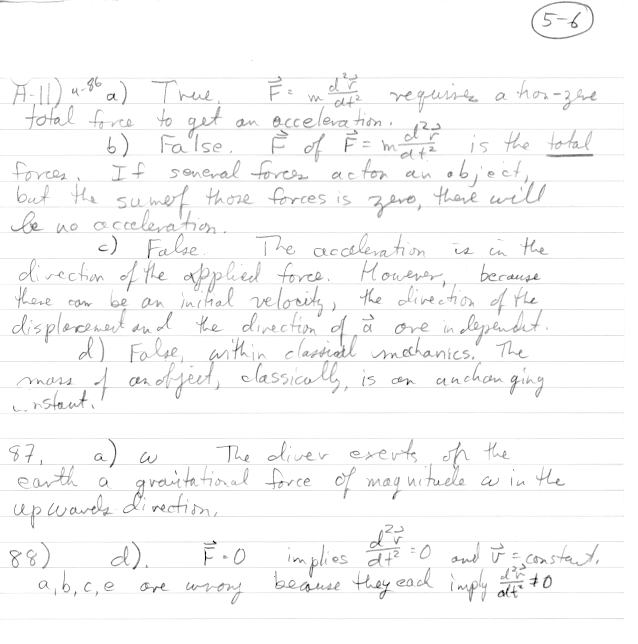 5-6
A-11) 4-86 a) True. F⃗ = m d²r⃗/dt² requires a non-zero
total force to get an acceleration.
b) False. F⃗ of F⃗ = m d²r⃗/dt² is the total
forces. If several forces act on an object,
but the sum of those forces is zero, there will
be no acceleration.
c) False. The acceleration is in the
direction of the applied force. However, because
there can be an initial velocity, the direction of the
displacement and the direction of a⃗ are independent.
d) False, within classical mechanics. The
mass of an object, classically, is an unchanging
constant.
87. a) w The diver exerts on the
earth a gravitational force of magnitude w in the
upwards direction.
88) d). F⃗ = 0 implies d²r⃗/dt² = 0 and v⃗ = constant.
a, b, c, e are wrong because they each imply d²r⃗/dt² ≠ 0